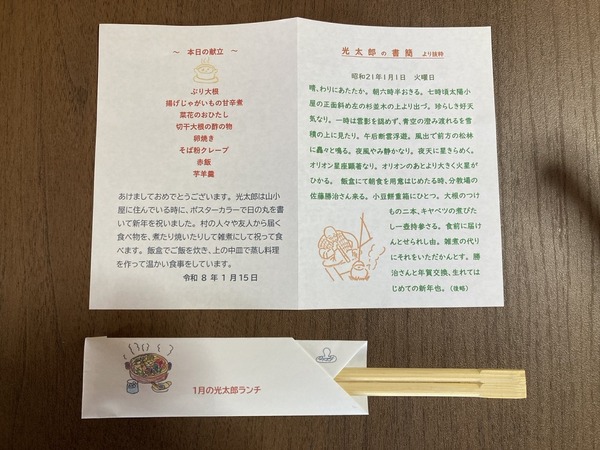 ～ 本日の献立 ～
ぶり大根
揚げじゃがいもの甘辛煮
菜花のおひたし
切干大根の酢の物
卵焼き
そば粉クレープ
赤飯
芋羊羹
あけましておめでとうございます。光太郎は山小
屋に住んでいる時に、ポスターカラーで日の丸を書
いて新年を祝いました。村の人々や友人から届く
食べ物を、煮たり焼いたりして雑煮にして祝って食
べます。飯盒でご飯を炊き、上の中皿で蒸し料理
を作って温かい食事をしています。
令和 8 年 1 月 15 日
光太郎の書簡 より抜粋
昭和21年1月1日 火曜日
晴、わりにあたたか。朝六時半おきる。七時頃太陽小
屋の正面斜め左の杉並木の上より出づ。珍らしき好天
気なり。一時は雲影を認めず、青空の澄み渡れるを雪
積の上に見たり。午后断雲浮遊。風出で前方の松林
に轟々と鳴る。夜風やみ静かなり。夜天に星きらめく。
オリオン星座顕著なり。オリオンのあとより大きく火星が
ひかる。 飯盒にて朝食を用意はじめたる時、分教場の
佐藤勝治さん来る。小豆餅重箱にひとつ。大根のつけ
もの二本、キャベツの煮びた
し一壺持参さる。食前に届け
んとせられし由。雑煮の代り
にそれをいただかんとす。勝
治さんと年賀交換、生れては
じめての新年也。（後略）
1月の光太郎ランチ